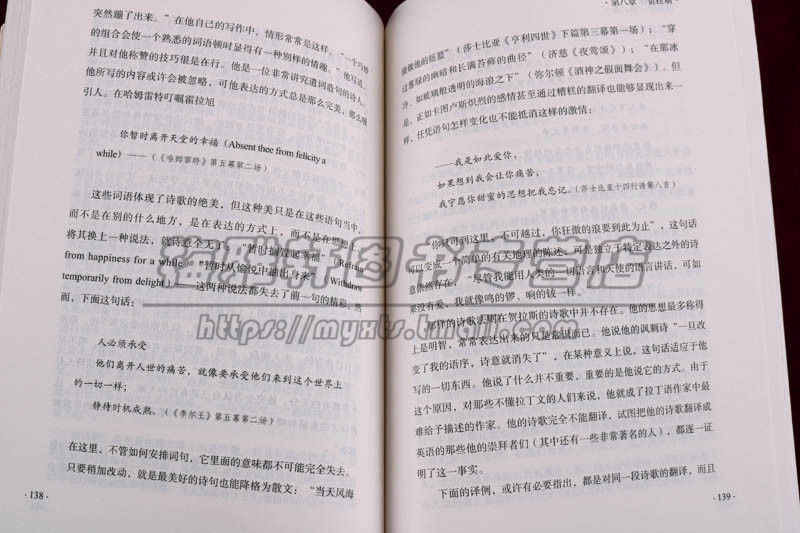 突然蹦了出来。”在他自己的写作中，情形常常是这样。“一个巧妙
的组合会使一个熟悉的词语顿时显得有一种别样的情趣。”他写道，
并且对他称赞的技巧很是在行。他是一位非常讲究遣词造句的诗人，
他所写的内容或许会被忽略，可他表达的方式总是那么完美，那么吸
引人。在哈姆雷特叮嘱霍拉旭
你暂时离开天堂的幸福（Absent thee from felicity a
while）——（《哈姆雷特》第五幕第二场）
这些词语体现了诗歌的绝美，但这种美只是在这些语句当中，
而不是在别的什么地方，是在表达的方式上，而不是在思想上，
将其换上一种说法，就诗意全无了。“暂时搁置起幸福”（Refrain
from happiness for a while），“暂时从愉悦中抽出身来”（Withdraw
temporarily from delight）——这两种说法都失去了前一句的精彩。然
而，下面这句话：
人必须承受
他们离开人世的痛苦，就像要承受他们来到这个世界上
的一切一样；
静待时机成熟。（《李尔王》第五幕第二场）
在这里，不管如何安排词句，它里面的意味都不可能完全失去。
只要稍加改动，就是最美好的诗句也能降格为散文：“当天风海
· 138 ·
· 第八章 贺拉斯 ·
傲他的摇篮”（莎士比亚《亨利四世》下篇第三幕第一场）；“穿
过葱绿的幽暗和长满苔藓的曲径”（济慈《夜莺颂》）；“在那冰
冷、如玻璃般透明的海浪之下”（弥尔顿《酒神之假面舞会》）。但
是，正如卡图卢斯炽烈的感情甚至通过糟糕的翻译也能够显现出来一
样，任凭语句怎样变化也不能抵消这样的激情：
——我是如此爱你，
如果想到我会让你痛苦，
我宁愿你甜蜜的思想把我忘记。（莎士比亚十四行诗第八首）
“你只可到这里，不可越过，你狂傲的浪要到此为止”，这句话
可以变成一个简单的有关地理的陈述，可是独立于特定表达之外的诗
意依然存在，“尽管我能用人类的一切语言和天使的语言讲话，可如
果没有爱，我就像鸣的锣、响的钹一样。”
那样的诗歌法则在贺拉斯的诗歌中并不存在。他的思想最多称得
上是明智，常常表达出来的只是常识而已。他说他的讽刺诗“一旦改
变了我的语序，诗意就消失了”，在某种意义上说，这句话适应于他
写的一切东西。他说了什么并不重要，重要的是他说它的方式。由于
这个原因，对那些不懂拉丁文的人们来说，他就成了拉丁语作家中最
难给予描述的作家。他的诗歌完全不能翻译，试图把他的诗歌翻译成
英语的那些他的崇拜者们（其中还有一些非常著名的人），都逐一证
明了这一事实。
下面的译例，或许有必要指出，都是对同一段诗歌的翻译，而且
· 139 ·
轩图书专营店
https://myxts.tmall.com